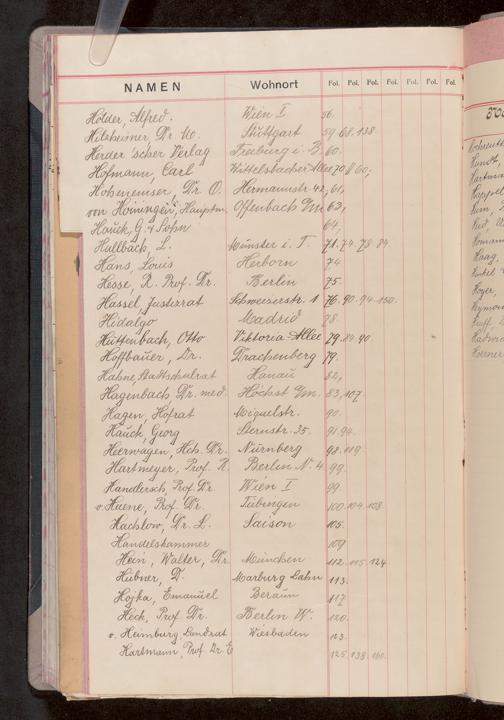 NAMEN Wohnort Fol. Fol. Fol. Fol. Fol. Fol. Fol.
Hölder, Alfred. Wien I 56.
Hilzheimer, Dr. M. Stuttgart 59 68. 138.
Herder'scher Verlag Freiburg i. B 60.
Hofmann, Carl Wittelsbacher Allee 70 8 60;
Hohenemser, Dr. O. Hermannstr 42, 61,
von Hoiningen, Hauptm. Offenbach a/m. 63,
Hauck, G. & Sohn 64,
Hallbäck, L. Münster i. T. 71. 74. 78. 84
Hans, Louis Herborn 74
Hesse, R. Prof. Dr. Berlin 75.
Hassel, Justizrat Schweizerstr. 1 76. 90. 94. 150.
Hidalgo Madrid 78.
Hüttenbach, Otto Viktoria Allee 79. 84 90.
Hoffbauer, Dr. Trachenberg 79.
Hahne, Stadtschulrat Hanau 82,
Hagenbach, Dr. med. Höchst a/m. 83, 107.
Hagen, Hofrat Miquelstr. 90.
Hauck, Georg Sternstr. 35. 91. 94.
Heerwagen, Hch. Dr. Nürnberg 98. 119.
Hartmeyer, Prof. R. Berlin N. 4 99.
Handlirsch, Prof. Dr. Wien I 99.
v. Huene, Prof. Dr. Tübingen 100. 104. 108.
Hachlow, Dr. L. Saison 105.
Handelskammer 109
Hein, Walter, Dr. München 112. 115. 124.
Hübner, D. Marburg Lahn 113.
Hojka, Emanuel Beraun 117
Heck, Prof. Dr. Berlin W. 120.
v. Heimburg, Landrat Wiesbaden 123.
Hartmann, Prof. Dr. E 125. 138. 160.